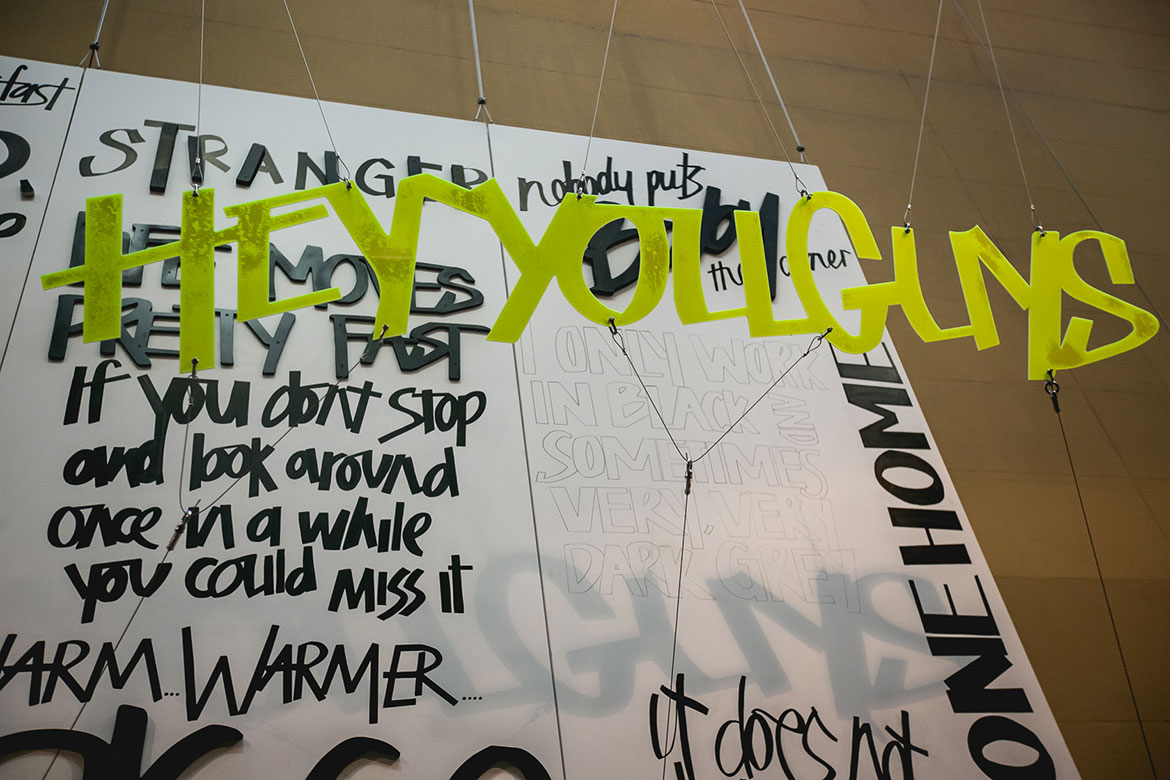 fast
STRANGER
HEY YOU GUYS
LIFE MOVES
PRETTY FAST
If you don't stop
and look around
once in a while
you could miss it
WARM... WARMER....
nobody puts
Baby
the corner
I ONLY WORK
IN BLACK AND
SOMETIMES
VERY, VERY
DARK GREY
it does not
ONE HOME
GUYS